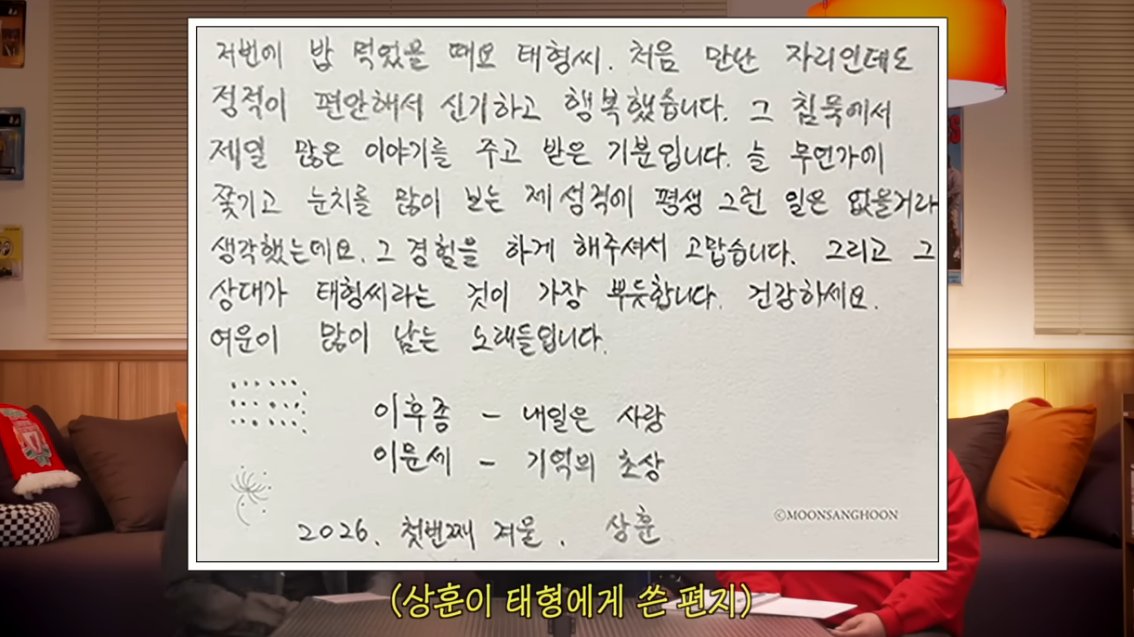 저번에 밥 먹었을 때요 태형씨. 처음 만난 자리인데도
정적이 편안해서 신기하고 행복했습니다. 그 침묵에서
제일 많은 이야기를 주고 받은 기분입니다. 늘 무언가에
쫓기고 눈치를 많이 보는 제 성격에 평생 그런 일은 없을거라
생각했는데요. 그 경험을 하게 해주셔서 고맙습니다. 그리고 그
상대가 태형씨라는 것이 가장 뿌듯합니다. 건강하세요.
여운이 많이 남는 노래들입니다.
이후종 – 내일은 사랑
이문세 – 기억의 초상
©MOONSANGHOON
2026. 첫번째 겨울. 상훈
(상훈이 태형에게 쓴 편지)